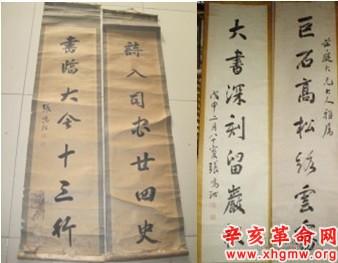 詩入司空廿四史
書臨大令十三行
張鳴珂
巨石高松
雲
大書深刻留嚴
戊申二月八十叟張鳴珂
辛亥革命网
www.xhgmw.org